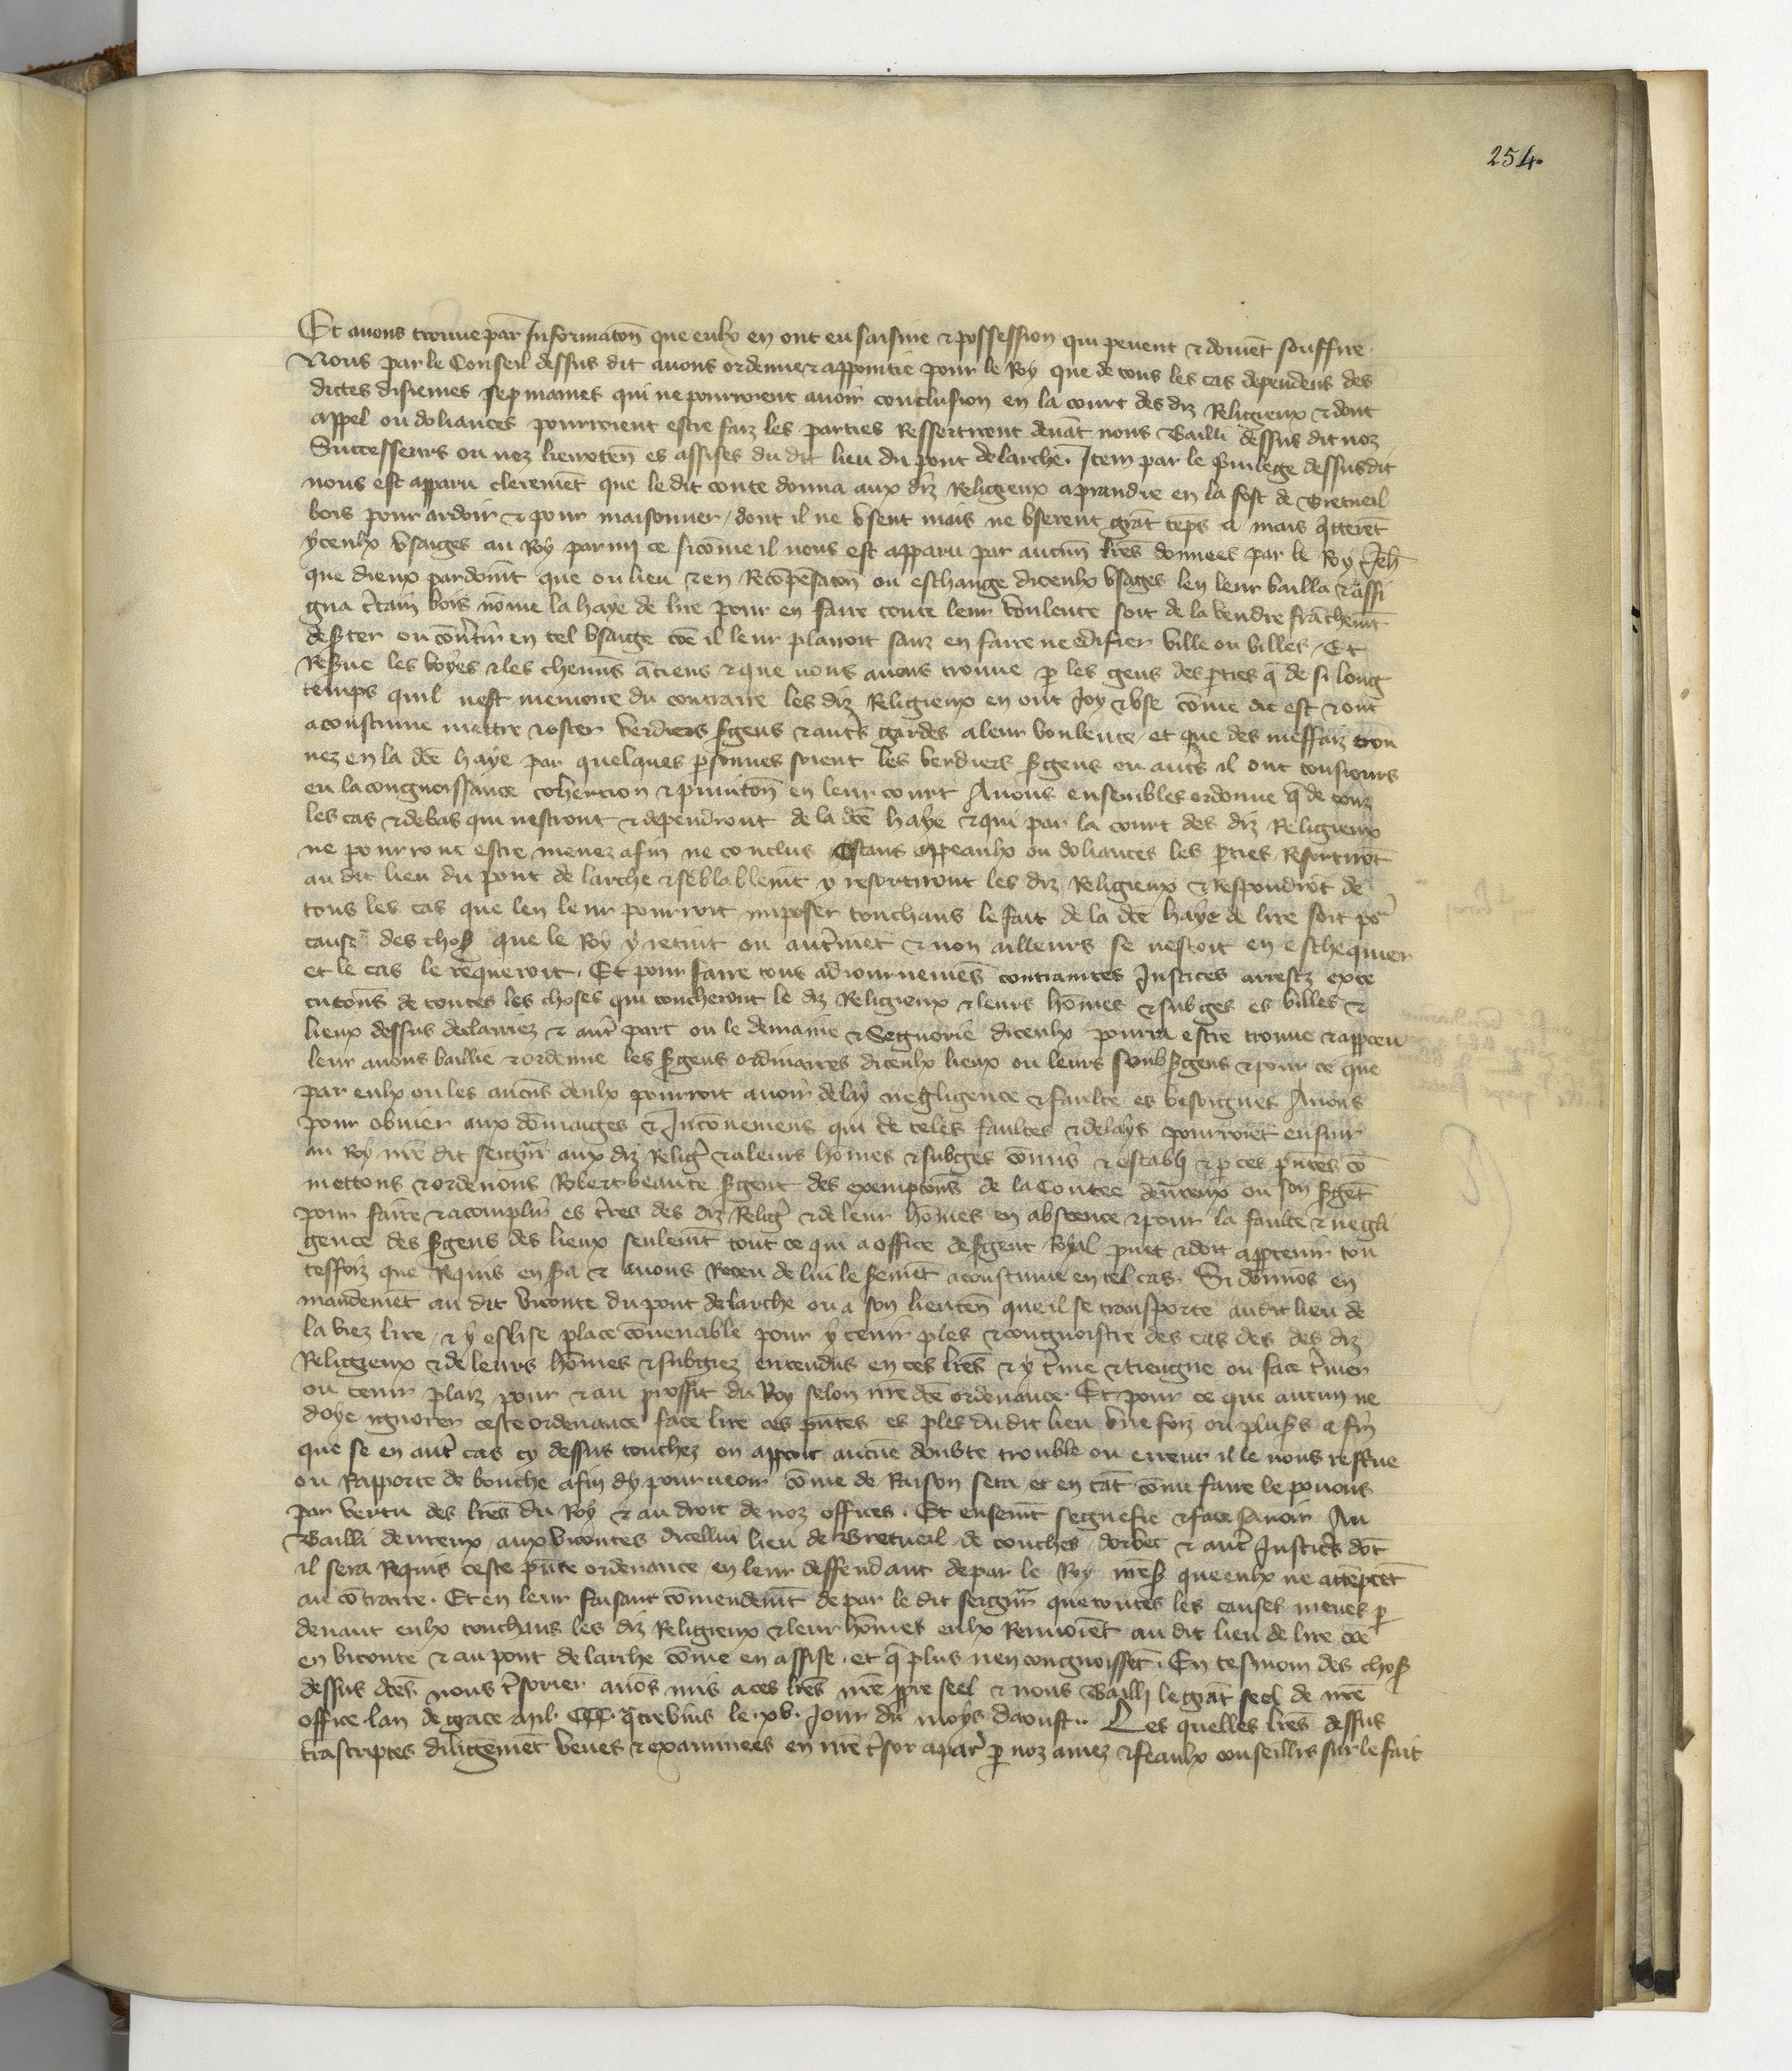 254.
Et auons trouue par Informaton que eulx en ont eu saisine & possession qui peuent & doiuet souffire.
Nous par le Conseil dessus dit auons ordenne & appointie pour le Roy que de tous les cas dependens des
dictes disiemes sepmaines qui ne pourroient auoir conclusion en la court des diz Religieux & dont
appel ou doliances pourroient estre faiz les parties Ressortiront deuat nous Bailli dessus dit noz
Successeurs ou noz lieuxten es assises du dit lieu du pont de larche. Item par le priuilege dessusdit
nous est apparu cleremet que le dit conte donna aux diz Religieux a prandre en la fost de Bretueil
bois pour ardoir & pour maisonner / dont il ne vsent mais ne vserent grat teps a mais qtteret
yceulx vsaiges au Roy parmi ce sicome il nous est apparu par aucun lres donnees par le Roy Jeh
que dieux pardoint que ou lieu & en Recopesaton ou eschange diceulx vsages len leur bailla & assi
gna ctain bois nome la haye de lire pour en faire toute leur voulente soit de la vendre frachemt
desster ou conutir en tel vsaige coe il leur plairoit sanz en faire ne edifier ville ou villes / Et
Resue les voyes & les chemis aciens & que nous auons trouue p les gens des pties q de si long
temps quil nest memoire du contraire les diz Religieux en ont Joy & vse come dit est & ont
acoustume mettre & oster verdiers sgens & autrs gardes a leur voulente / et que des meffaiz trou
uez en la dce haye par quelques psonnes soient les verdiers sgens ou autrs il ont tousiours
eu la congnoissance cohercion & puniton en leur court Auons ensembles ordonne q de touz
les cas & debas qui nestront & dependront de la dce haye & qui par la court des diz Religieux
ne pourront estre menez afin ne conclus Estans appeaulx ou doliances les pties Resortirot
au dit lieu du pont de larche & seblablemt y resortiront les diz Religieux & Respondrot de
tous les cas que len leur pourroit imposer touchans le fait de la dce haye de lire soit por
cause des chos que le Roy y retint ou autremet & non ailleurs se nestoit en eschequier
et le cas le requeroit. Et pour faire tous adiournemes contraintes Justices arrestz exce
cutons de toutes les choses qui toucheront le diz Religieux & leurs homes & subges es villes &
lieux dessus declairiez & autr part ou le demaine & Segnorie diceulx pourra estre trouue & appceu
leur auons baillie & ordenne les sgens ordinaires diceulx lieux ou leurs soub sgens & pour ce que
par eulx ou les aucus deulx pourroit auoir delay negligence & faulte es besoignes Auons
pour obuier aux domaiges & Inconueniens qui de teles faultes & delays pourroiet ensuir
au Roy nre dit seignr aux diz Religr & a leurs homes & subges comis & establ & p ces pntes co
mettons & ordenons Robert beaute sgent des exemptons de la Contee deureux ou son sget
pour faire & acomplir es tres des diz Religr & de leur homes en abscence & pour la faulte & negli
gence des sgens des lieux seulemt tout ce qui a office de sgent Royal puet & doit apptenir tou
tesfoiz que Requis en sa & auons Receu de lui le semet acoustume en tel cas. Si donnos en
mandemet au dit viconte du pont de larche ou a son lieuten que il se transporte au dit lieu de
la viez lire / & y eslise place couenable pour y tenir ples & congnoistre des cas des des diz
Religieux & de leurs homes & subgiez entendus en ces lres & y tme & tiengne ou face tmer
ou tenir plaiz pour & au proffit du Roy selon nre dce ordenance. Et pour ce que aucun ne
doye ignorer ceste ordenance face lire ces pntes es ples du dit lieu vne foiz ou pluss a fin
que se en autr cas cy dessus touchez on appcoit aucue doubte trouble ou erreur il le nous resscue
ou Rapporte de bouche afin dy pourueoir come de Raison sera / et en tat come faire le pouons
par vertu des lres du Roy & au droit de noz offices. Et ensemt segnefie & face sauoir Au
Bailli deureux / aux vicontes dicellui lieu de Bretueil de conches / dorbec & autr Justicrs dot
il sera Requis ceste pnte ordenance / en leur deffendant depar le Roy nres que eulx ne atteptet
au contraire. Et en leur faisant comendemt de par le dit seignr que toutes les causes menes p
deuant eulx touchans les diz Religieux & leur homes eulx Renuoiet au dit lieu de lire coe
en viconte & au pont de larche come en assise. et q plus nen congnoisset. En tesmoin des chos
dessus dces nous tsorier auos mis a ces lres nre ppre seel & nous Bailli le grat seel de nre
office. lan de grace mil. CCC. qtrevins le .xv. Jour du moys daoust. Les quelles lres dessus
trascriptes diligemet veues & examinees en nre tsor a part p noz amez & feaulx conseillrs sur le fait